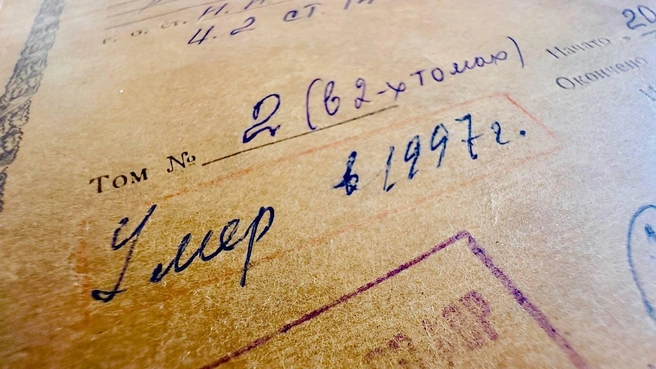 ч. 2 ст.
Начато 20
Окончено
Том № 2 (в 2-х томах)
Умер в 1997 г.